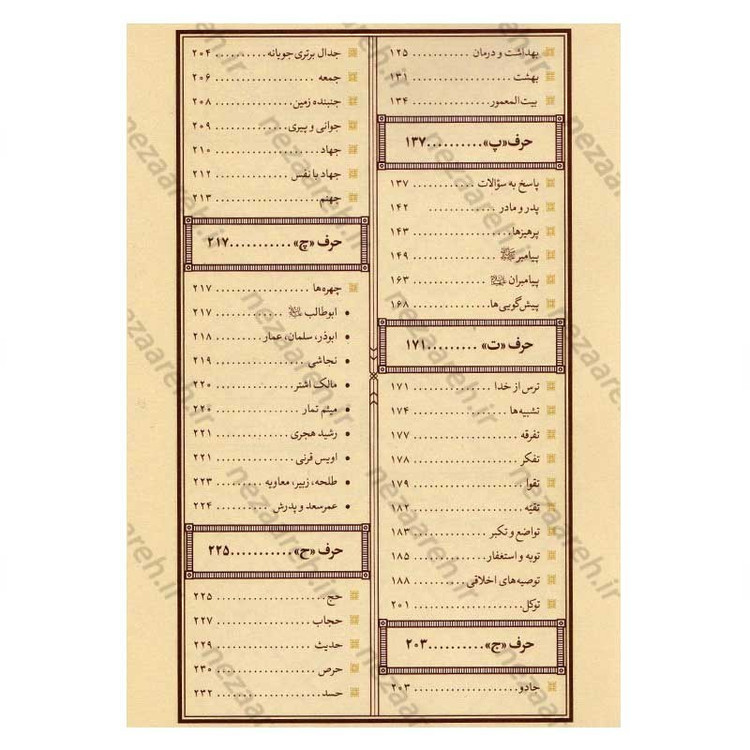 بهداشت و درمان ............ ۱۲۵
بهشت ............ ۱۳۱
بیت‌المعمور ............ ۱۳۴
حرف «پ» .......... ۱۳۷
پاسخ به سؤالات ............ ۱۳۷
پدر و مادر ............ ۱۴۲
پرهیزها ............ ۱۴۳
پیامبر ﷺ ............ ۱۴۹
پیامبران ............ ۱۶۳
پیش‌گویی‌ها ............ ۱۶۸
حرف «ت» ......... ۱۷۱
ترس از خدا ............ ۱۷۱
تشبیه‌ها ............ ۱۷۴
تفرقه ............ ۱۷۷
تفکر ............ ۱۷۸
تقوا ............ ۱۷۹
تقیّه ............ ۱۸۲
تواضع و تکبر ............ ۱۸۳
توبه و استغفار ............ ۱۸۵
توصیه‌های اخلاقی ............ ۱۸۸
توکل ............ ۲۰۱
حرف «ج» .......... ۲۰۳
جادو ............ ۲۰۳
جدال برتری جویانه ............ ۲۰۴
جمعه ............ ۲۰۶
جنبنده زمین ............ ۲۰۸
جوانی و پیری ............ ۲۰۹
جهاد ............ ۲۱۰
جهاد با نفس ............ ۲۱۲
جهنم ............ ۲۱۳
حرف «چ» ........... ۲۱۷
چهره‌ها ............ ۲۱۷
• ابوطالب ............ ۲۱۷
• ابوذر، سلمان، عمار ............ ۲۱۸
• نجاشی ............ ۲۱۹
• مالک اشتر ............ ۲۲۰
• میثم تمار ............ ۲۲۰
• رشید هجری ............ ۲۲۱
• اویس قرنی ............ ۲۲۱
• طلحه، زبیر، معاویه ............ ۲۲۳
• عمرسعد و پدرش ............ ۲۲۴
حرف «ح» ........... ۲۲۵
حج ............ ۲۲۵
حجاب ............ ۲۲۷
حدیث ............ ۲۲۹
حرص ............ ۲۳۰
حسد ............ ۲۳۲
nezaareh.ir